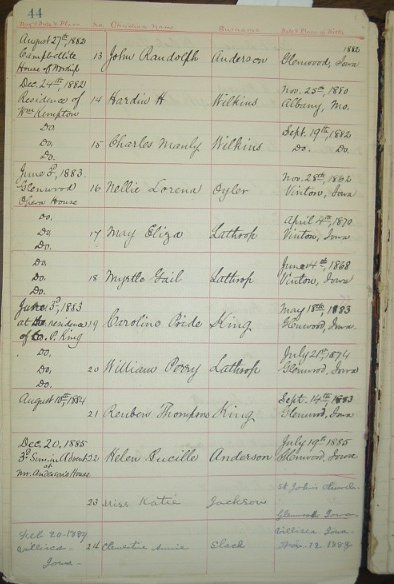 44
Day & Date & Place No. Christian Name Surname Date & Place of Birth
August 27th, 1882 1882
Campbellite 13 John Randolph Anderson Glenwood, Iowa
House of Worship
Dec. 24th, 1882 Nov. 25th 1880
Residence of 14 Hardin H Wilkins Albany, Mo.
Wm Kempton
Do. Sept. 19th, 1882
Do. 15 Charles Manly Wilkins Do. Do.
Do.
June 3d, 1883. Nov. 28th 1862
Glenwood 16 Nellie Lorena Oyler Vinton, Iowa
Opera House
Do. April 4th, 1870
Do. 17 May Eliza Lathrop Vinton, Iowa
Do.
Do. June 4th 1868
Do. 18 Myrtle Gail Lathrop Vinton, Iowa
Do.
June 3d, 1883 May 18th, 1883
at the residence 19 Caroline Pride King Glenwood, Iowa
of P. King
Do. July 21st 1874
Do. 20 William Perry Lathrop Glenwood, Iowa
Do.
August 10th, 1884 Sept. 14th, 1883
21 Reuben Thompson King Glenwood, Iowa
Dec. 20, 1885 July 19th 1885
3d Sun. in Advent 22 Helen Lucille Anderson Glenwood, Iowa
at
Mr. Anderson's House
St. John's Church
23 Miss Katie Jackson
Glenwood Iowa
Feb 20-1889 Villisca Iowa
Villisca 24 Clementine Annie Slack 12 1889
Iowa